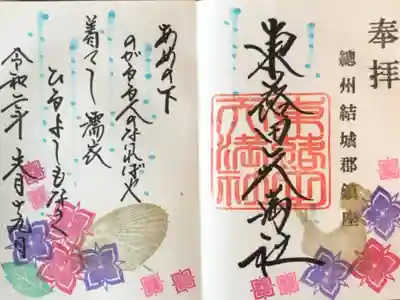 奉拝
總州結城郡鎮座
東蕗田天満社
あめの下
のがるる人のなければや
着てし濡衣
ひるよしもなき
令和二年 六月